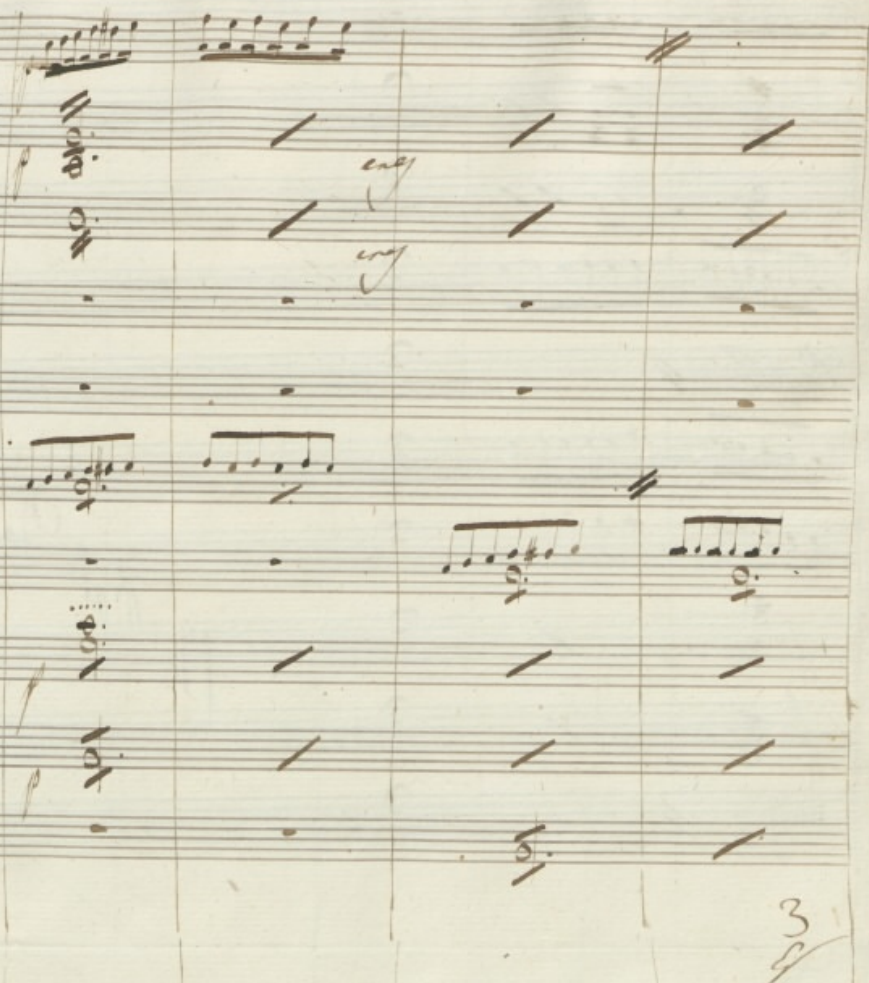 p
p
cres
cres
p
p
3